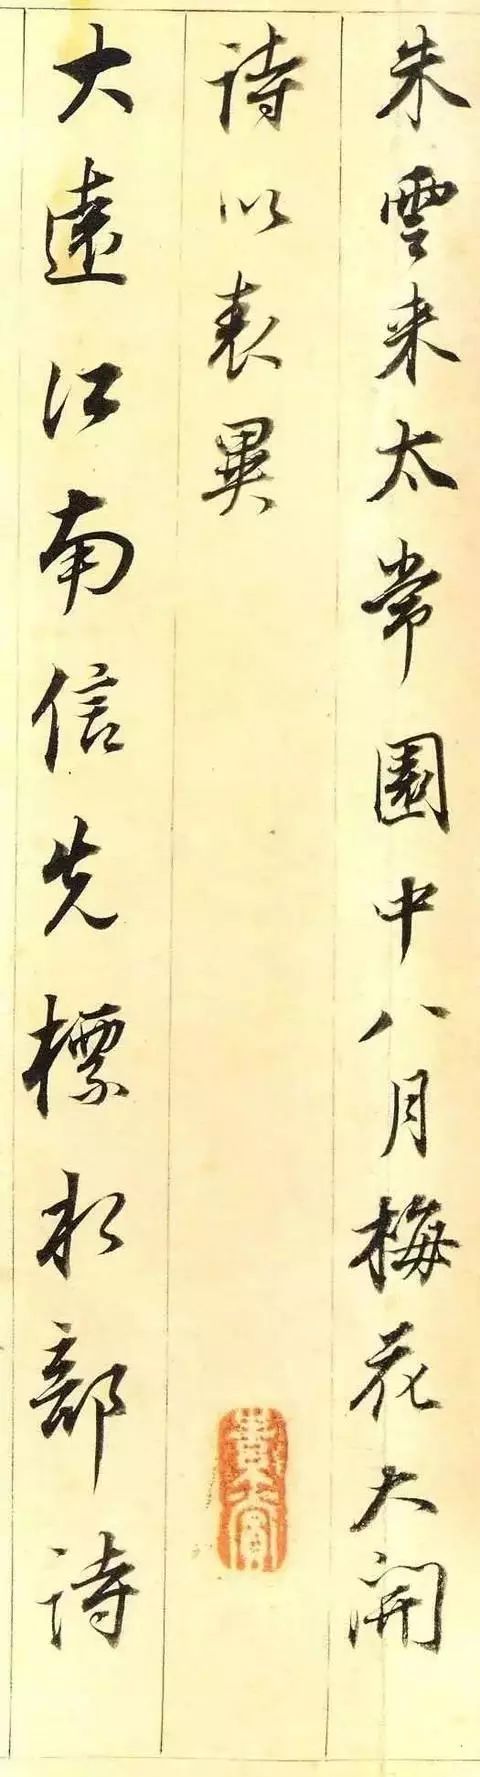 朱雲来太常園中八月梅花大開
詩以表異
大遠江南信先標水部詩